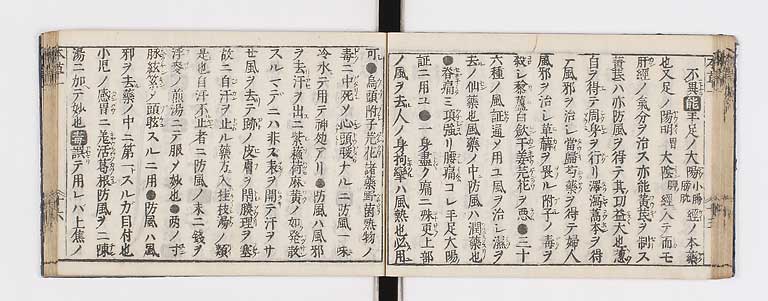 不異能手足ノ大陽小腸膀胱經ノ本藥
也又足ノ陽明胃大陰脾經ニ入テ而モ
肝經ノ氣分ヲ治ス亦能黄芪ヲ制ス
黄芪ハ亦防風ヲ得テ其功益大也葱
白ヲ得テ周身ヲ行リ澤瀉藁本ヲ得
テ風邪ヲ治シ當歸芍藥ヲ得テ婦人
ノ風邪ヲ治シ草薢ヲ畏ル附子ノ毒ヲ
殺シ藜蘆白歛干姜芫花ヲ悪●三十
六種ノ風証通メ用ユ風ヲ治シ濕ヲ
去ノ仙藥也風藥ノ中防風ハ潤藥也
●脊痛ミ項強リ腰痛コレ手足大陽
証ニ用ユ●一身盡ク痛ニ殊更上部
ノ風ヲ去人ノ身拘攣ハ風熱也必用
可●烏頭附子芫花諸藥断菌熱物ノ
毒ニ中死ノ心頭暖ナルニ防風一味
冷水ニテ用テ神効アリ●防風ハ風邪
ヲ去汗ヲ出ニ紫蘇荷麻黄ノ如発散
スルマデニハ非ス表ヲ開テ汗ヲサ
セ風ヲ去テ跡ノ皮膚ヲ閉腠理ヲ塞
故ニ自汗ヲ止ル藥方ニ入桂枝湯ノ類
是也自汗不止者ニ防風ノ末二錢ヲ
浮麥ノ煎湯ニテ服ノ妙也●両ノ寸
脉絃ノ頭眩スルニ用●防風ハ風
邪ヲ去藥ノ中ニ第一スルガ目付也
小児ノ感冒ニ羌活葛根防風ヲ二陳
湯ニ加テ妙也毒誤テ用レバ上焦ノ